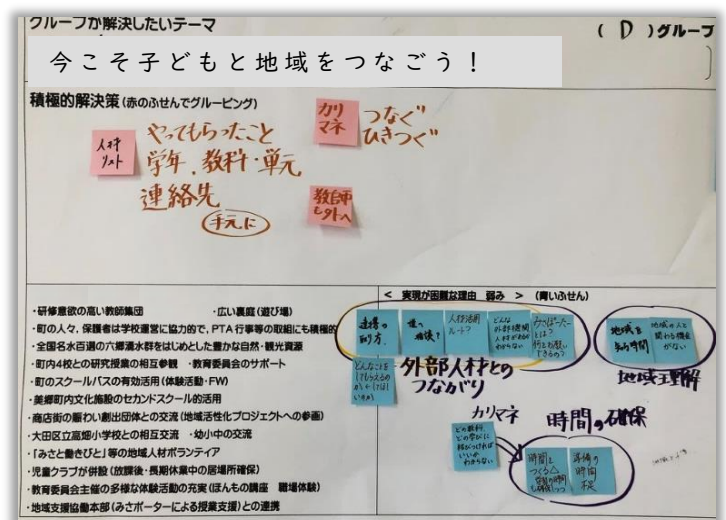 グループが解決したいテーマ
( D )グループ
今こそ子どもと地域をつなごう！
積極的解決策(赤のふせんでグルーピング)
人材
リスト
やってもらったこと
学年、教科・単元
連絡先
手元に
カリ
マネ
つなぐ
ひきつぐ
教師
も外へ
< 実現が困難な理由 弱み > (青いふせん)
・研修意欲の高い教師集団 ・広い裏庭(遊び場)
・町の人々，保護者は学校運営に協力的で，PTA行事等の取組にも積極的
・全国名水百選の六郷湧水群をはじめとした豊かな自然・観光資源
・町内4校との研究授業の相互参観 ・教育委員会のサポート
・町のスクールバスの有効活用(体験活動・FW)
・美郷町内文化施設のセカンドスクール的活用
・商店街の賑わい創出団体との交流(地域活性化プロジェクトへの参画)
・大田区立高畑小学校との相互交流 ・幼小中の交流
・「みさと働きびと」等の地域人材ボランティア
・児童クラブが併設(放課後・長期休業中の居場所確保)
・教育委員会主催の多様な体験活動の充実(ほんもの講座 職場体験)
・地域支援協働本部(みさポーターによる授業支援)との連携
連携の
取り方．
誰に
相談？
人材活用
ルート？
どんな
外部機関
人材があるか
わからない
みさぽーたー
とは？
何をお願い
できるの？
どんなことを
してもらえるの
外部人材との
つながり
地域を
知る時間
地域の人と
関わる機会
がない
地域理解
カリマネ
どの教科、
どの学びに
結びつければ
いいか
わからない
時間の確保
時間を
つくる△
準備の
時間
不足